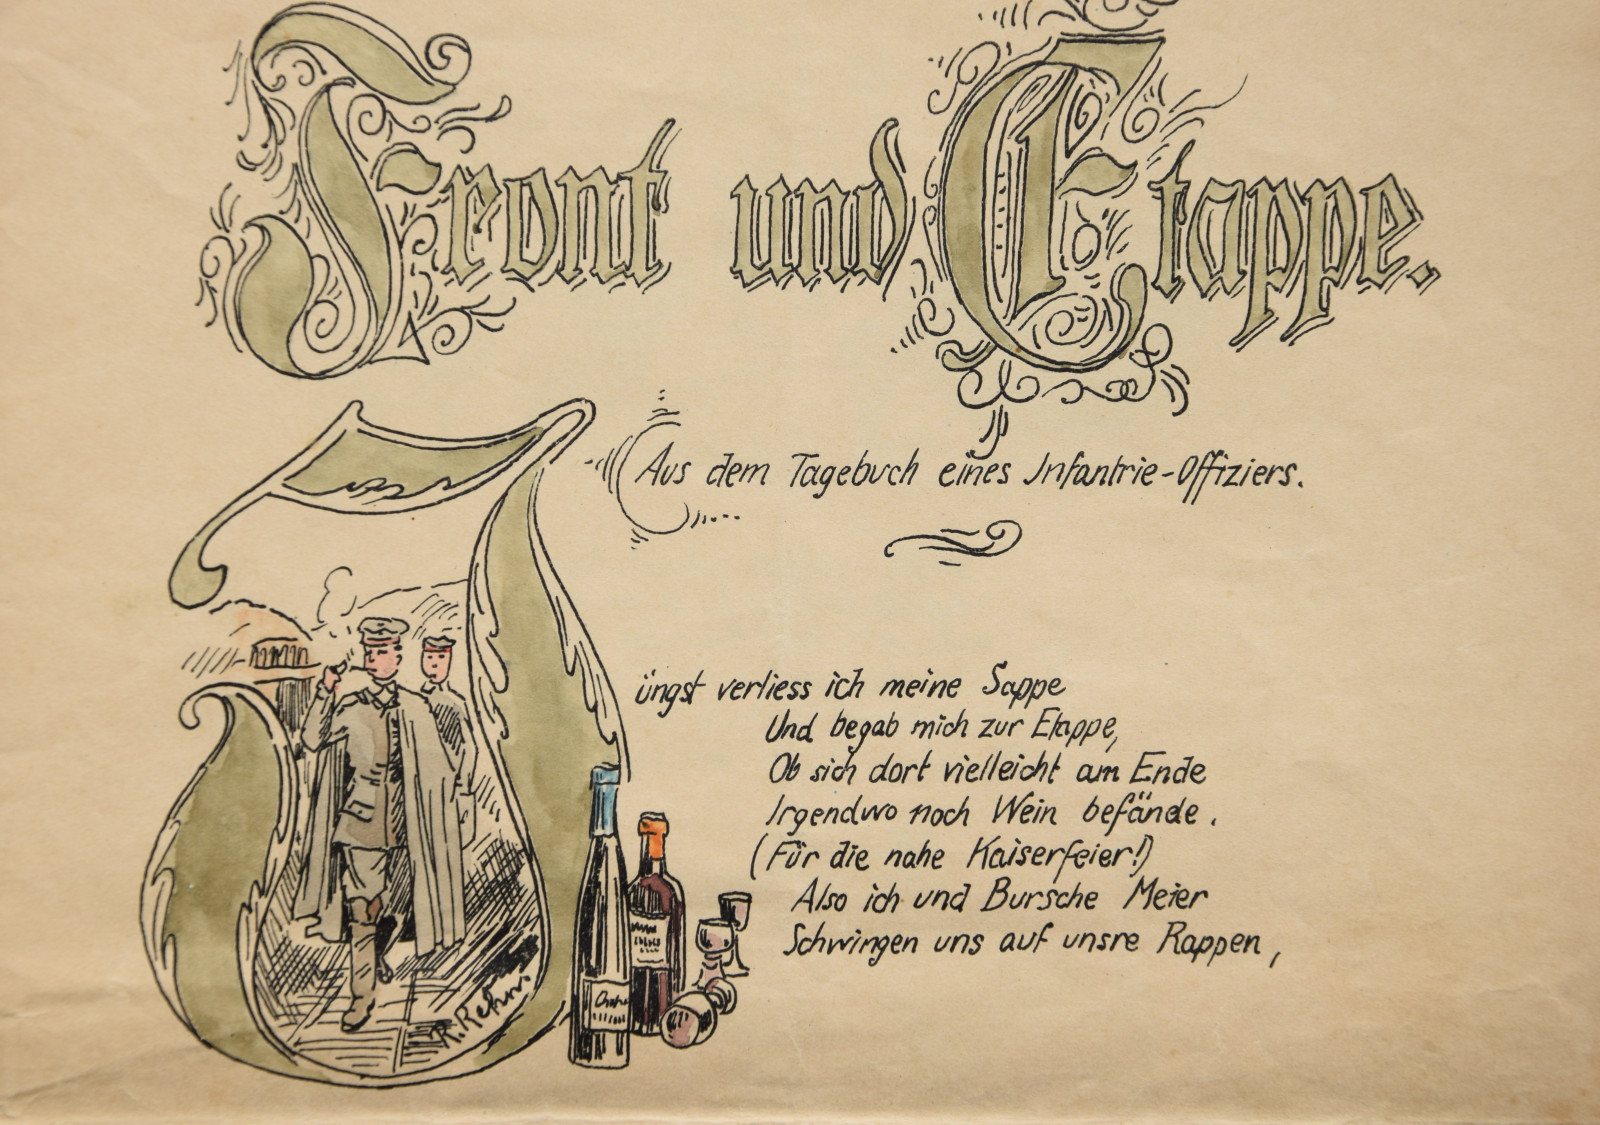 Front und Etappe.
Aus dem Tagebuch eines Infantrie-Offiziers.
Jüngst verliess ich meine Sappe
Und begab mich zur Etappe,
Ob sich dort vielleicht am Ende
Irgendwo noch Wein befände.
(Für die nahe Kaiserfeier!)
Also ich und Bursche Meier
Schwingen uns auf unsre Rappen,